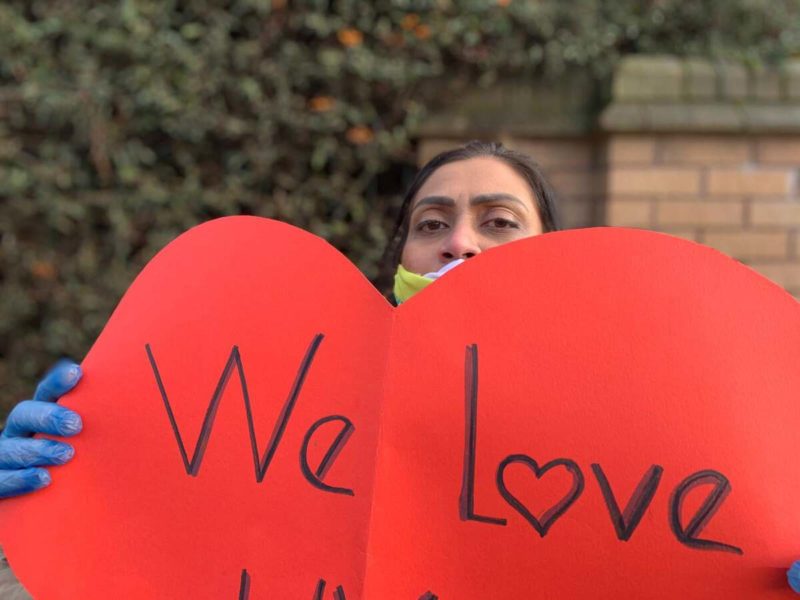 We Love